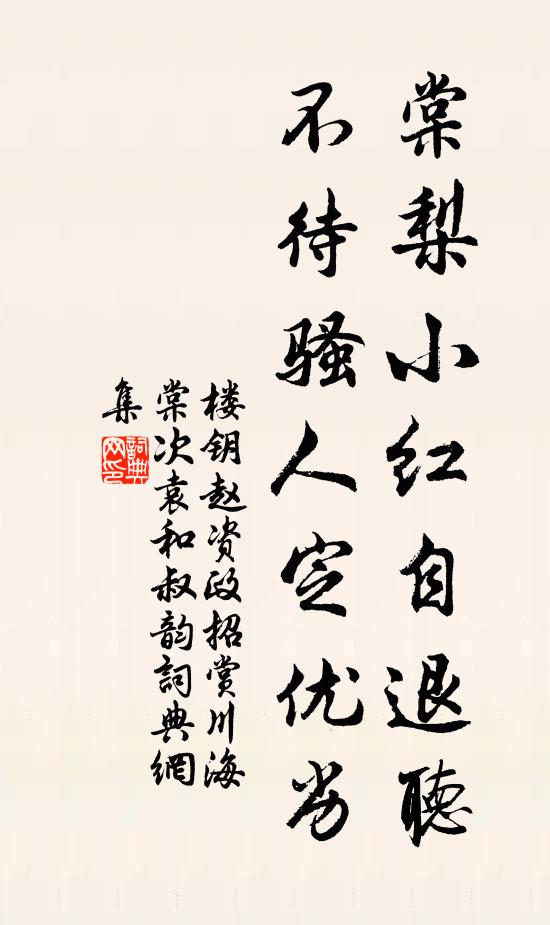 棠梨小红自退聽
不待骚人定优劣
楼钥赵资政招赏川海
棠次袁和叔韵詞典網
集
詞典网印